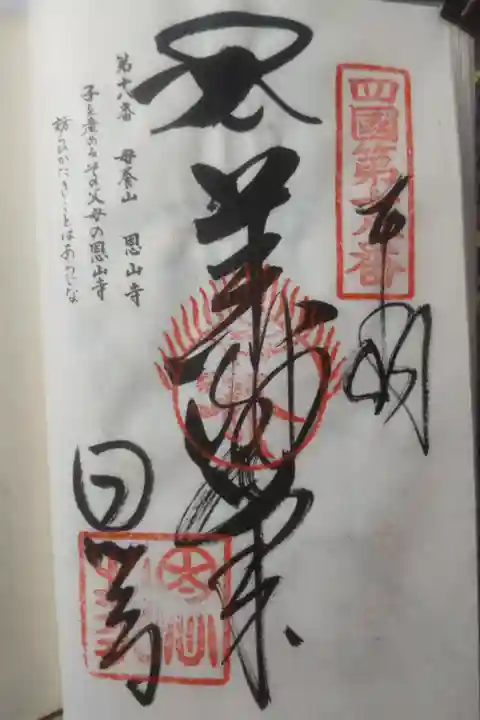 四國第十八番
奉納
薬師如来
恩山寺
第十八番 母養山 恩山寺
子を産めるその父母の恩山寺
訪らひがたきことはあらじな